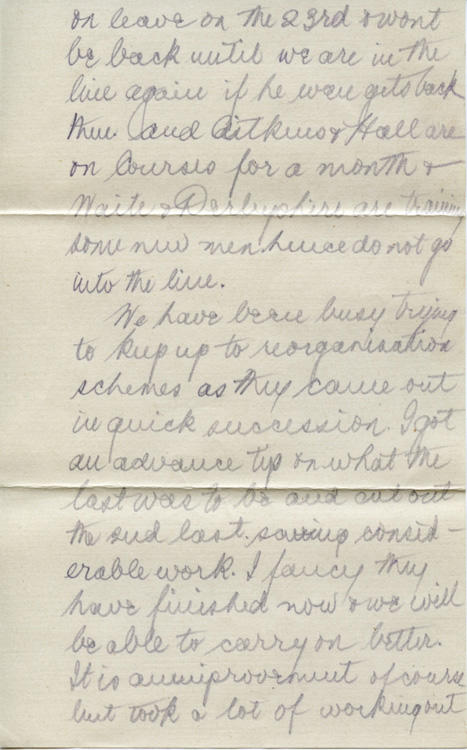 on leave on the 23rd & wont
be back until we are in the
line again if he even gets back
then. And Aitkins & Hall are
on Courses for a month &
Waite & Derbyshire are training
some new men hence do not go
into the line.
We have been busy trying
to keep up to reorganisation
schemes as they came out
in quick succession. I got
an advance tip on what the
last was to be and cut out
the 2nd last saving consid-
erable work. I fancy they
have finished now & we will
be able to carry on better.
It is an improvement of course
but took a lot of working out